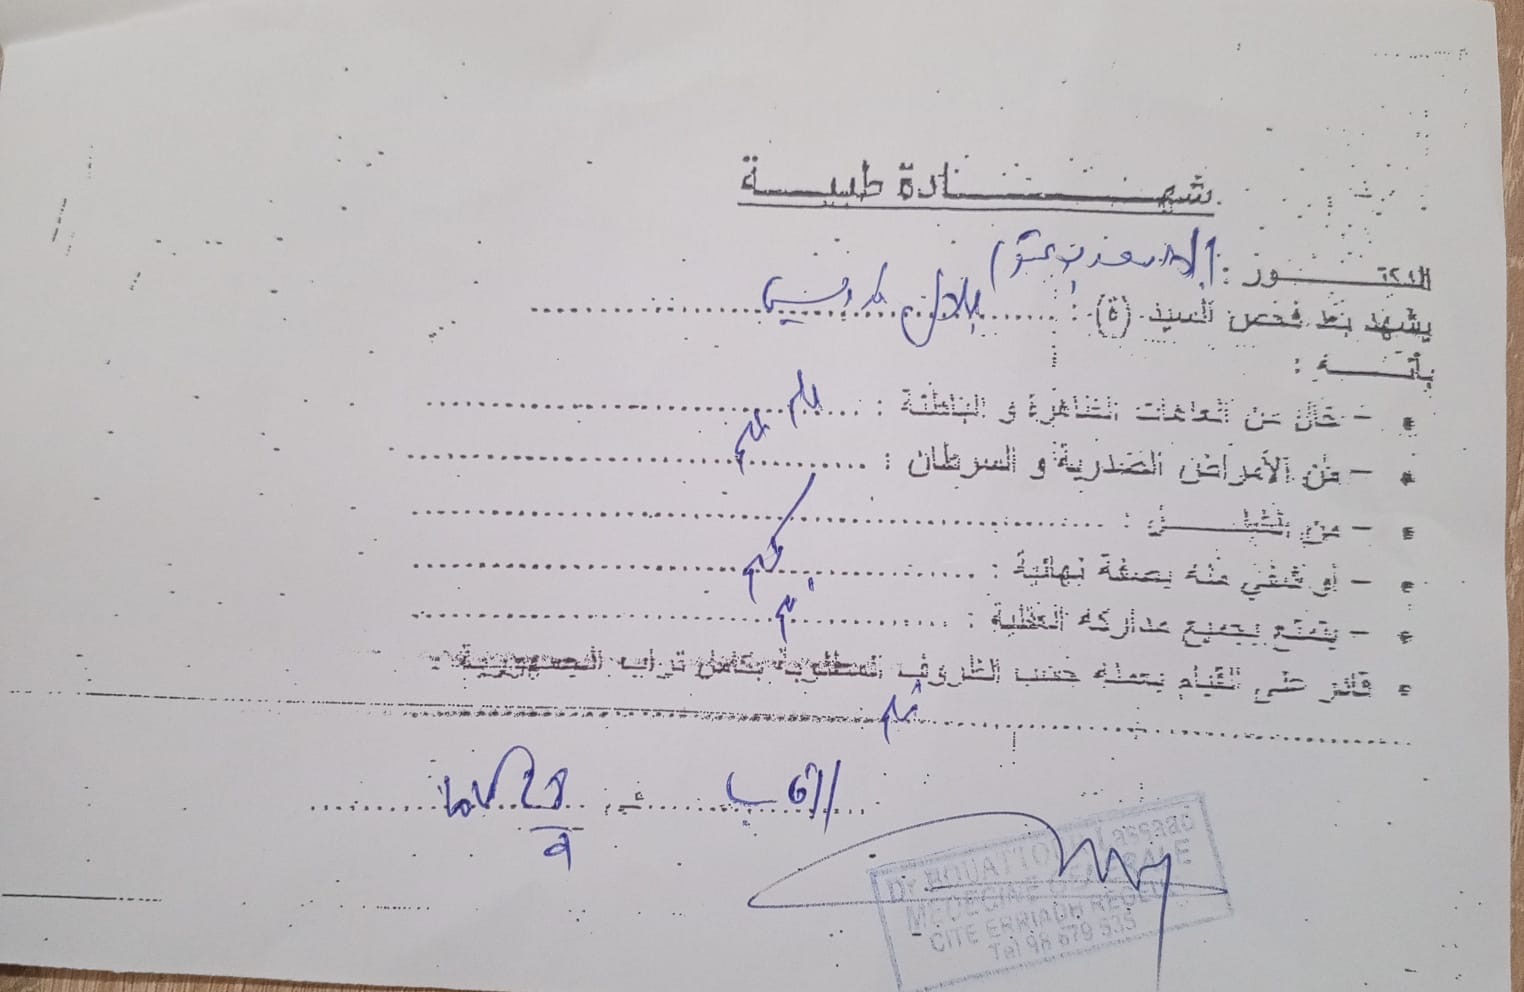 شهادة طبية
الدكتور : الأسعد بوعتور
يشهد بعد فحص السيد (ة) : بلال
بأنه :
- خال من العاهات الظاهرة و الباطنة : نعم
- من الأمراض الصدرية و السرطان : نعم
- من الشلل :
- أو شفي منه بصفة نهائية : نعم
- يتمتع بجميع مداركه العقلية : نعم
قادر على القيام بعمله حسب الظروف المطلوبة بكامل تراب الجمهورية :
نعم
الرقاب في
Dr BOUATTOUR Lassaad
MEDECINE GENERALE
CITE ERRIADH REGUEB
Tel 98 679 535